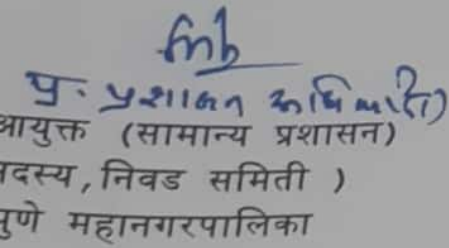 प्र. प्रशासन अधिकारी
आयुक्त (सामान्य प्रशासन)
सदस्य, निवड समिती )
पुणे महानगरपालिका